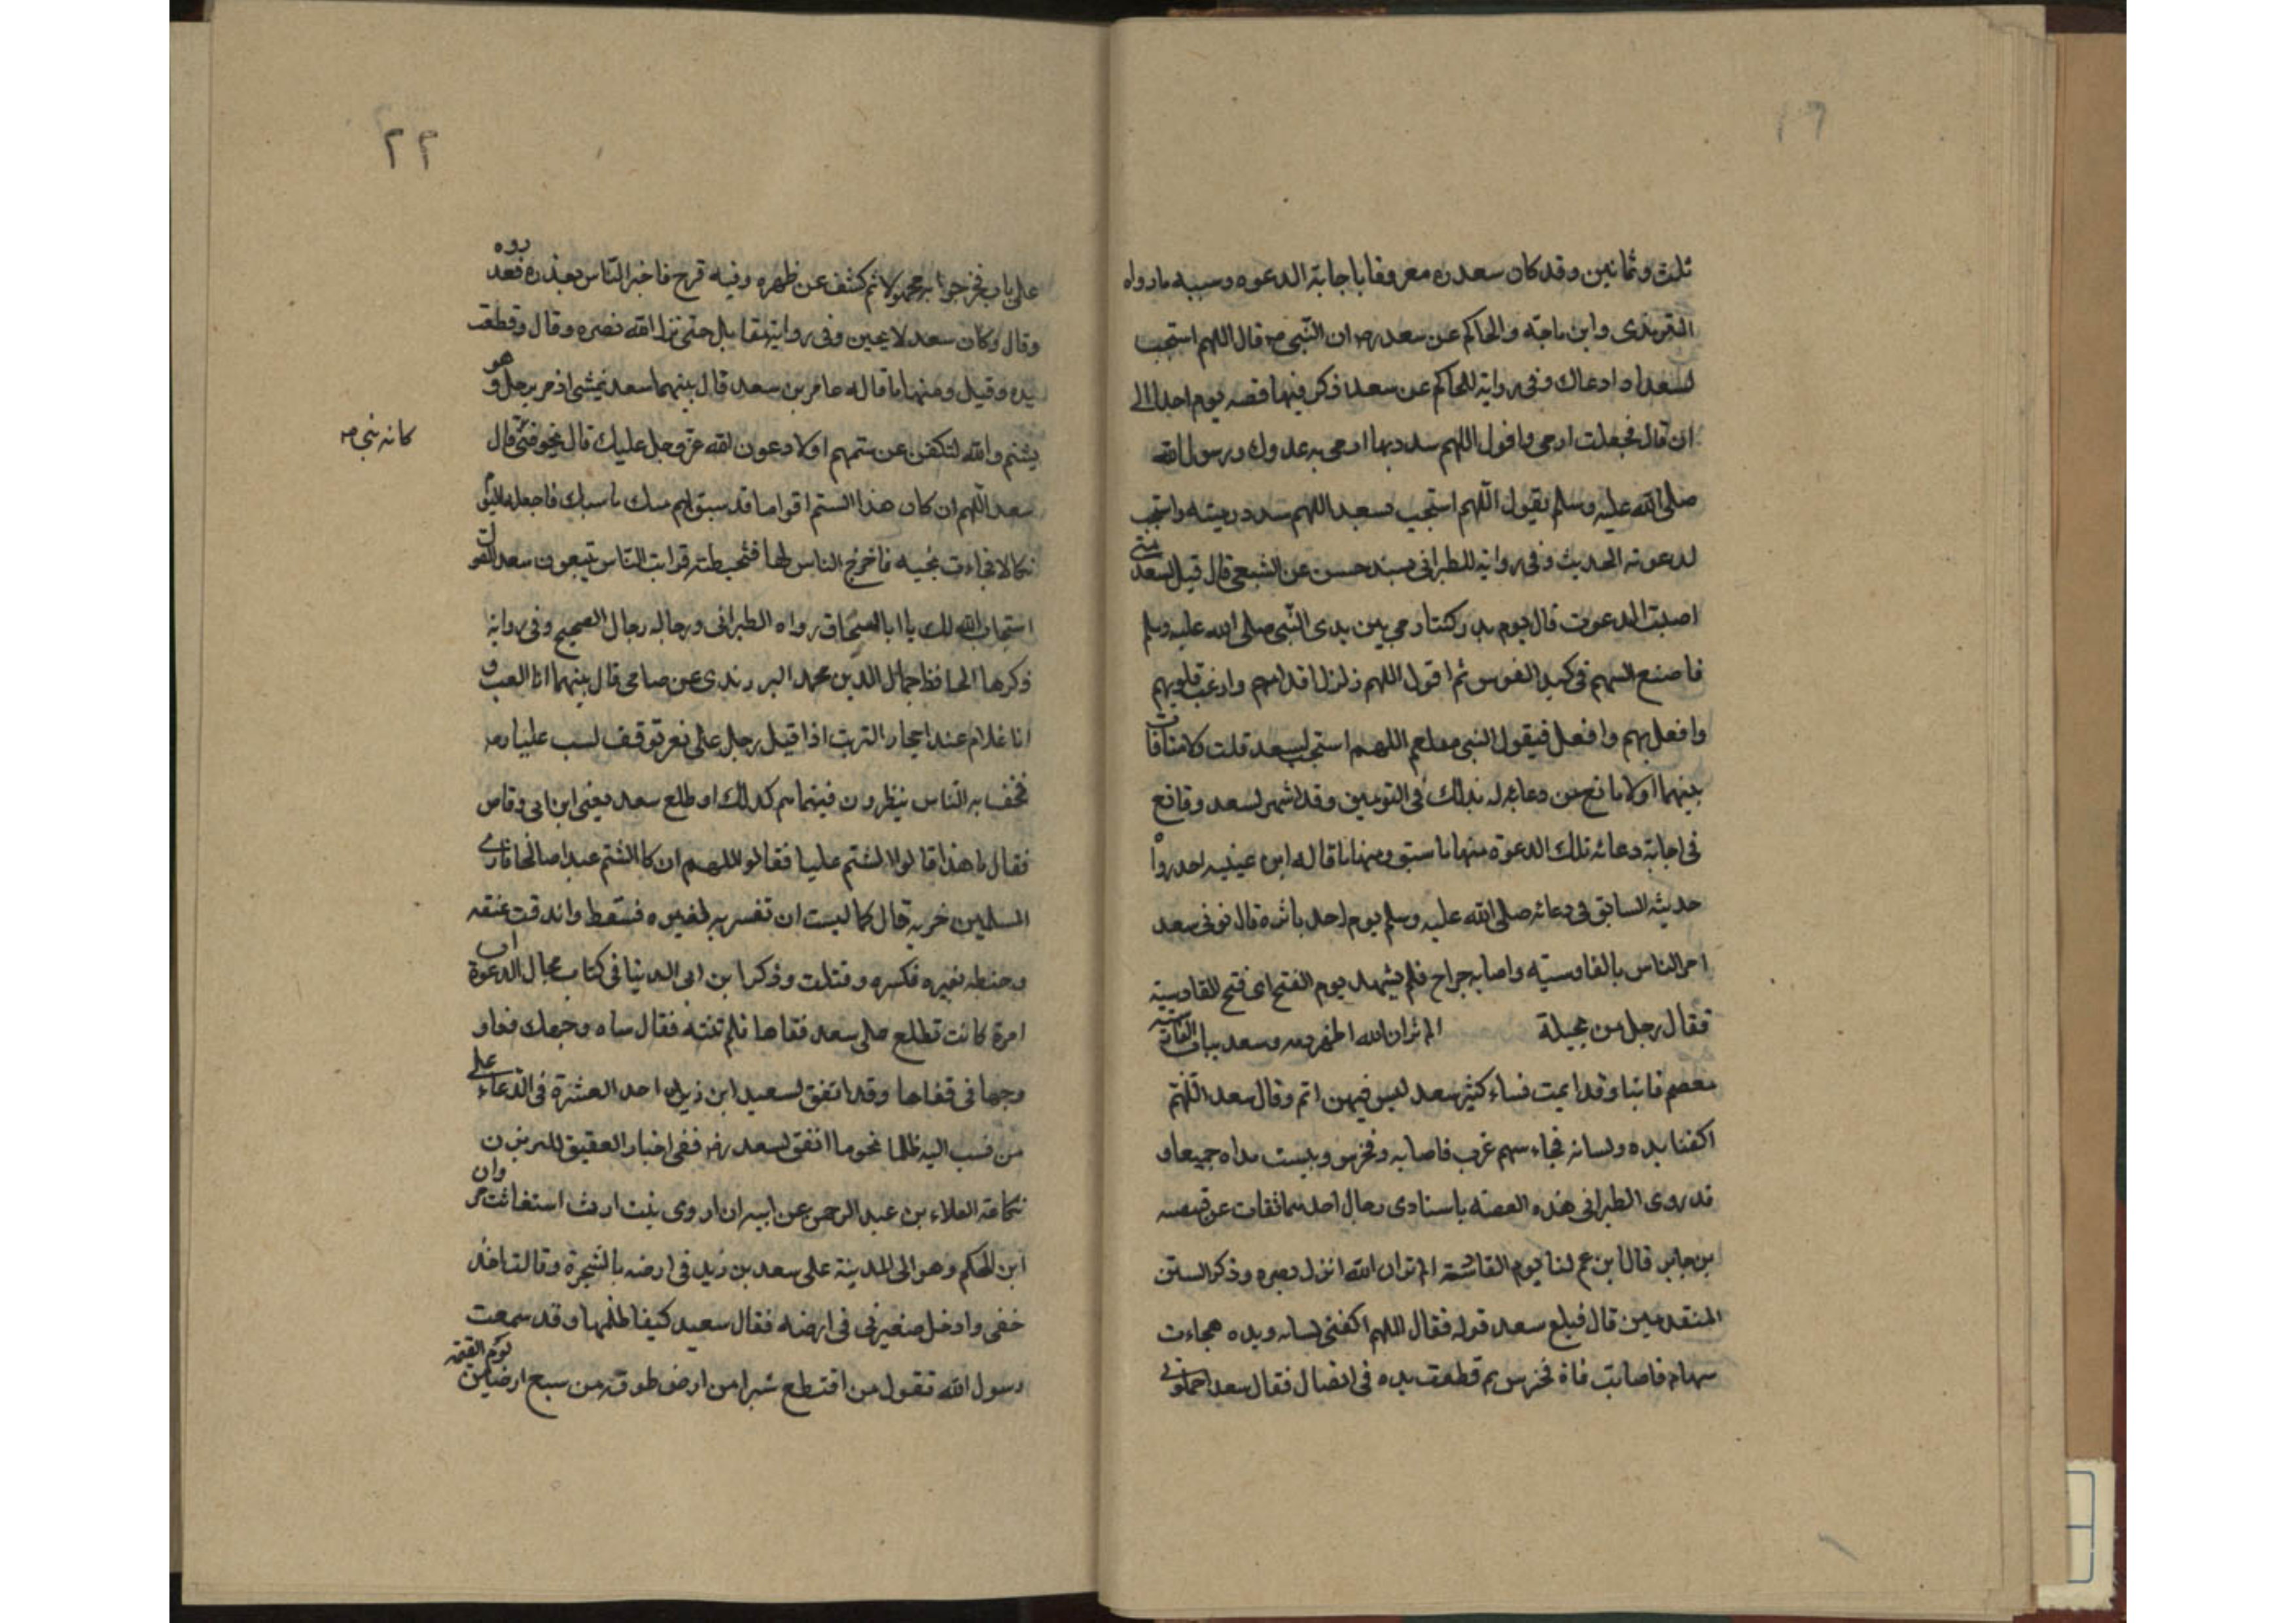 ثلث وثمانين وقد كان سعد ره معروفا باجابة الدعوه وسببه مارواه
الترمذى وابن ماجة والحاكم عن سعد رض ان النبى ص قال اللهم استجب
لسعد اذا دعاك وفى رواية للحاكم عن سعد ذكر فيها قصه يوم احد الى
ان قال فجعلت ارمى واقول اللهم سدد بها ارمى به عدوك ورسول الله
صلى الله عليه وسلم يقول اللهم استجب لسعد اللهم سدد رميته واستجب
لدعوته الحديث وفى رواية للطبرانى بسند حسن عن الشعبى قال قيل لسعد متى
اصبت الدعوت قال يوم بدر كنت ارمى بين يدى النبى صلى الله عليه وسلم
فاصنع السهم فى كبد القوس ثم اقول اللهم زلزل اقدامهم وارعب قلوبهم
وافعل بهم وافعل فيقول النبى صلعم اللهم استجب لسعد قلت ولامنافات
بينهما اولا مانع من دعائه له بذلك فى اليومين وقد اشتهر لسعد وقائع
فى اجابة دعائه تلك الدعوة منها ما سبق ومنها ما قاله ابن عيينه احد رواة
حديثه السابق فى دعائه صلى الله عليه وسلم يوم احد باثره قال نوفى سعد
امر الناس بالقاوسيته واصابه جراح فلم يشهد يوم الفتح اى فتح القادسية
فقال رجل من بجيلة الم تران الله اظهر دينه وسعد بباب القادسية
معصم فابنا وقد ايمت نساء كثير سعد ليس فيهن ايم وقال سعد اللهم
اكفنا يده ولسانه فجاء سهم غرب فاصابه وفخرس ويبست يداه جميعا و
قد روى الطبرانى هذه القصه باسنادى رجال احدهما ثقات عن قبيصه
بن جابر قال ابن عم لنا يوم القادسية الم تر ان الله انزل نصره وذكر البيتين
المتقدمين قال فبلغ سعد قوله فقال اللهم اكفنى لسانه ويده فجاءت
سهام فاصابت فاه فخرس ثم قطعت يده فى القتال فقال سعد احملونى
٢٢
على باب فخرجوا به محمولا ثم كشف عن ظهره وفيه قرح فاخبر الناس بعذره فعذروه
وقال وكان سعد لا يجبن وفى رواية يقاتل حتى نزل الله نصره وقال وقطعت
يده وقيل ومنها ما قاله عامر بن سعد قال بينهما سعد يمشى اذ مر برجل وهو
يشتم والله لتكفن عن ستمهم اولا دعون الله عز وجل عليك قال يخوفنى قال
كانه نبى ص
سعد اللهم ان كان هذا الستم اقواما قد سبق لهم منك ما سبك فاجعله اليوم
نكالا فجاءت بخيبه فاخرج الناس لها فتخبطته قرايت الناس يتبعون سعد
استجاب الله لك يا ابا اسحاق رواه الطبرانى ورجاله رجال الصحيح وفى رواية
ذكرها الحافظ جمال الدين محمد الزرندى عن صاحى قال بينهما انا العب و
انا غلام عند احجار الزيت اذا قيل رجل على بعر فوقف لسب عليا رض
فخف به الناس ينظرون فبينما هم كذلك اد طلع سعد يعنى ابن ابى وقاص
فقال ما هذا قالوا الشتم عليا فقالو اللهم ان كا الشتم عبدا صالحا فارى
المسلمين خزيه قال كما لبست ان تفسر به بغيره فسقط واندقت عنقه
وخبطه بغيره فكسره وقتلت وذكر ابن ابى الدنيا فى كتاب مجابى الدعوة ان
امرة كانت تطلع على سعد فقاها فلم تنته فقال ساه وجهك فعاد
وجهها فى قفاها وقد اتفق لسعيد ابن زيد احد العشرة فى الدعاء على
من نسب اليه ظلما نحو ما اتفق لسعد رض ففى اخبار العقيق للزبير بن
بكاعة العلاء بن عبد الرحمن عن ابيه ان اروى بنت ارث استغاثت مروان
ابن الحكم وهو الى المدينة على سعد بن زيد فى ارضه بالشجرة وقالت اخذ
حقى وادخل صغيرنى فى ارضه فقال سعيد كيف اظلمها وقد سمعت
رسول الله تقول من اقتطع شبرا من ارض طوقه من سبع ارضين يوم القيمة